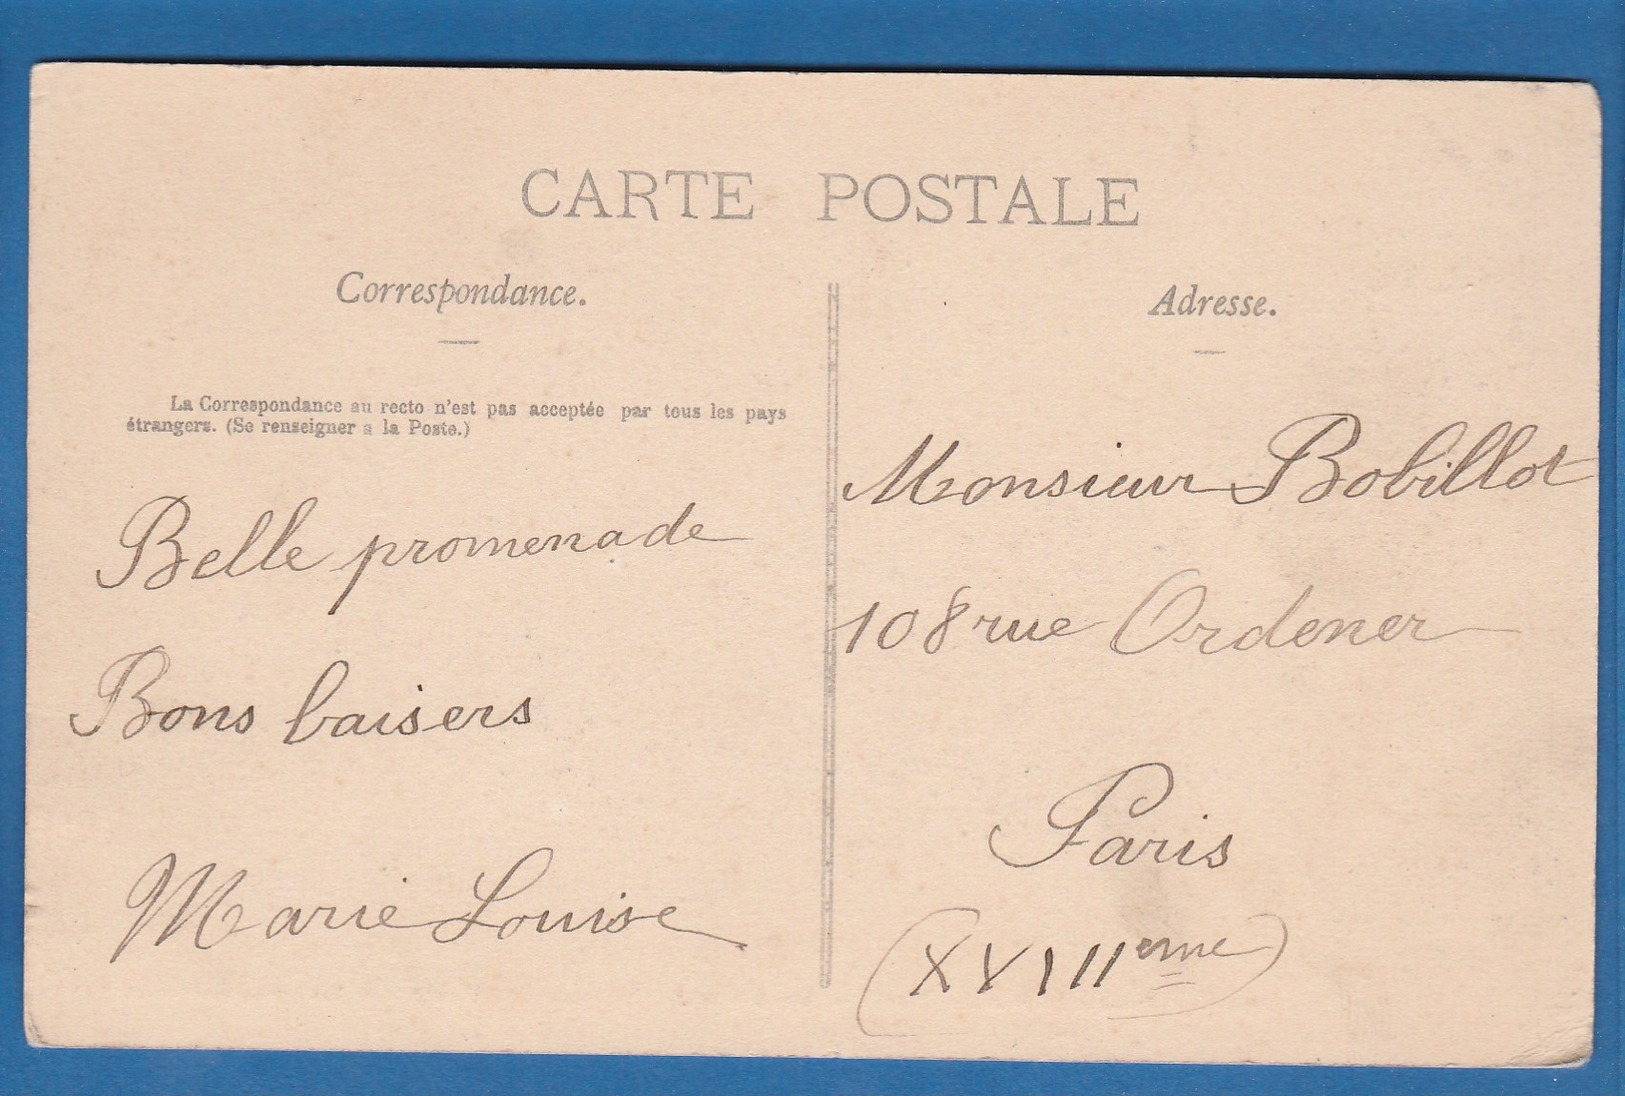 CARTE POSTALE
Correspondance.
La Correspondance au recto n'est pas acceptée par tous les pays
étrangers. (Se renseigner a la Poste.)
Belle promenade
Bons baisers
Marie Louise
Adresse.
Monsieur Bobillot
108 rue Ordener
Paris
(XVIIIeme)